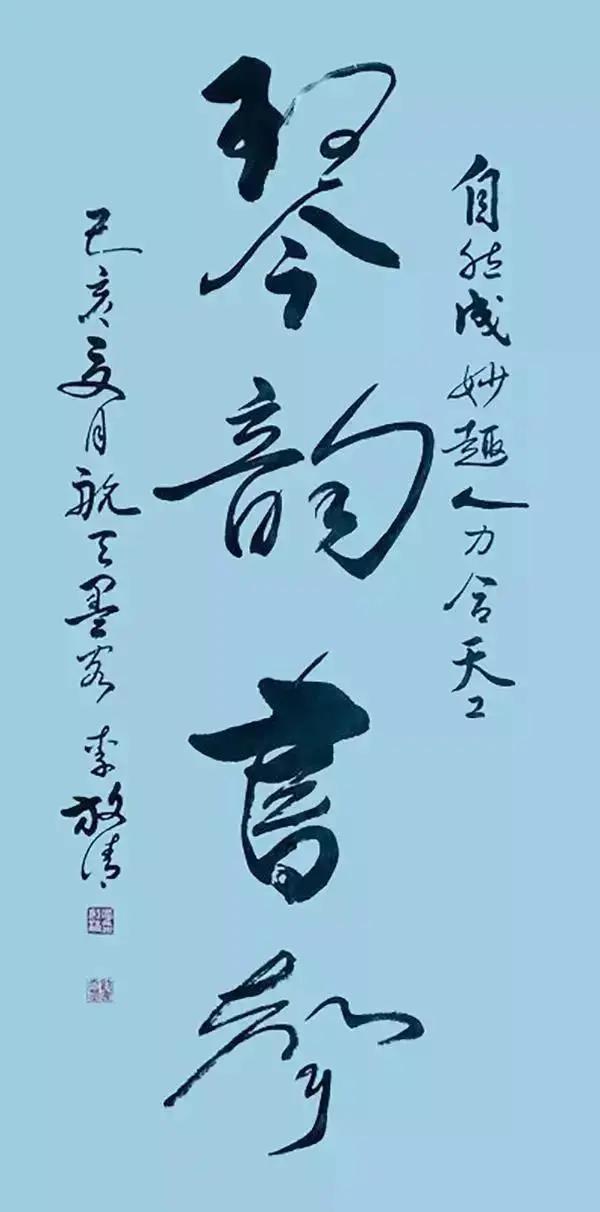 自然成妙趣人力合天工
琴韻書聲
己亥夏月航天墨客李放清